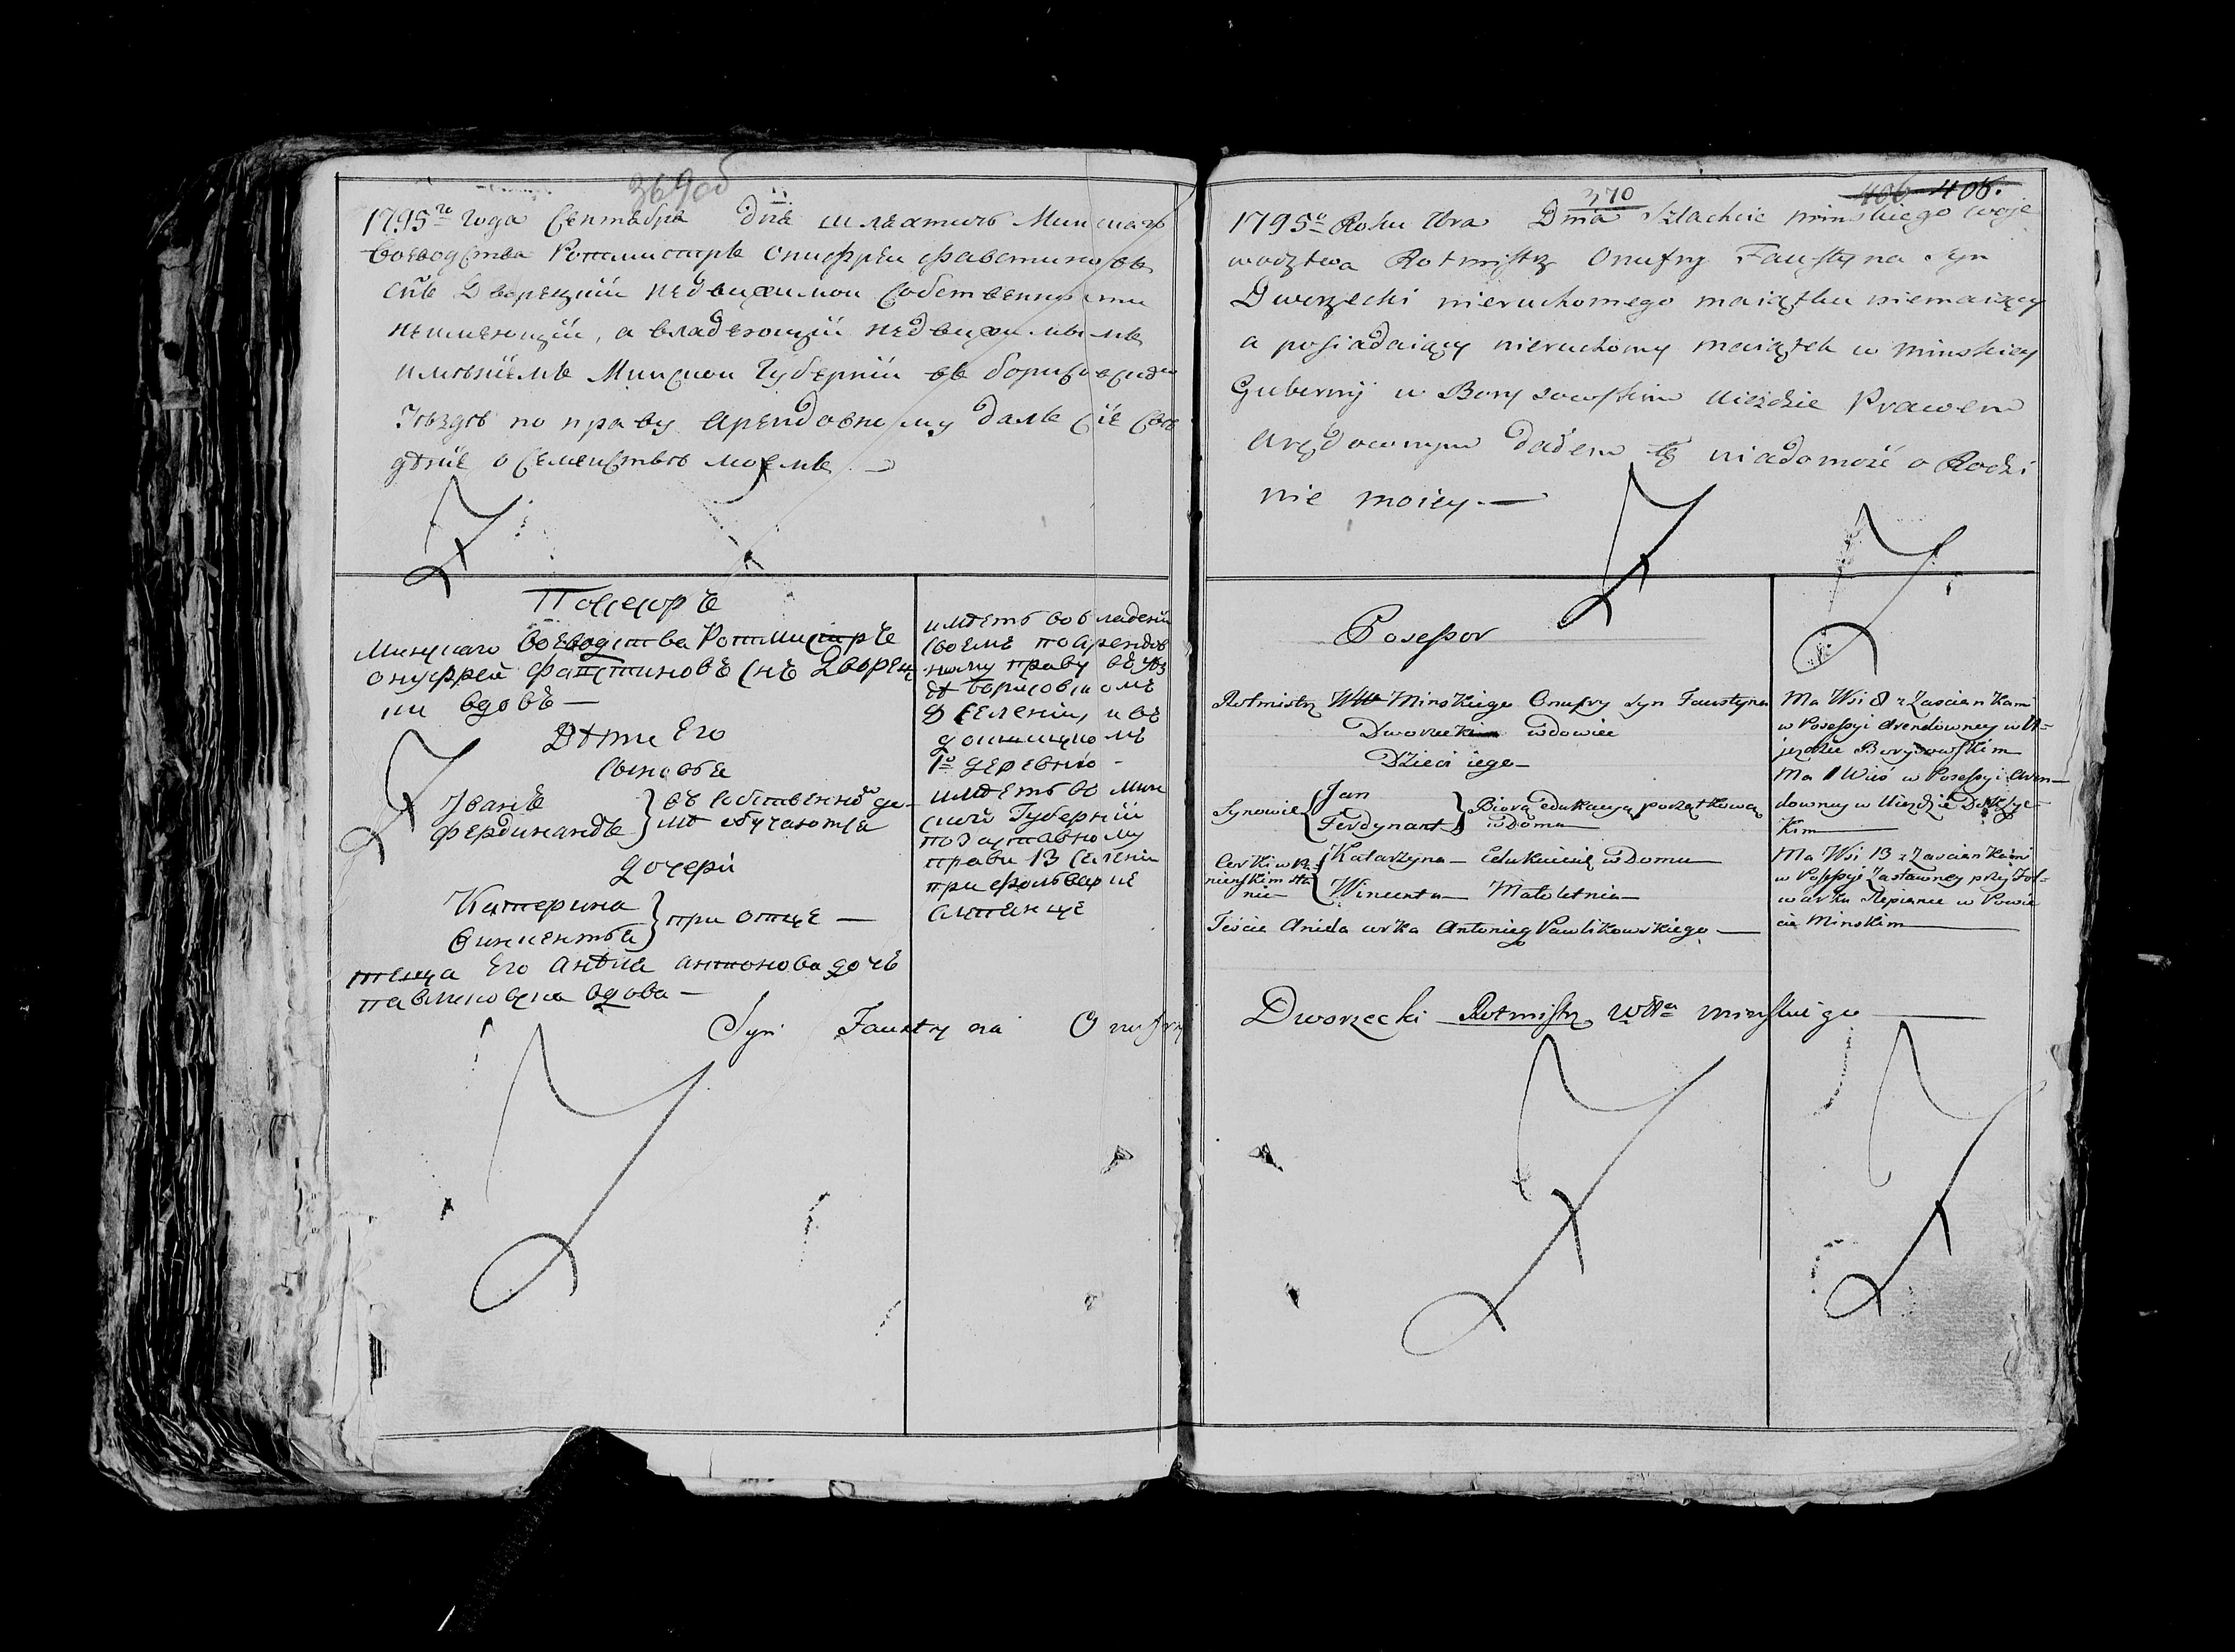 369об
1795го года Сентября дня шляхтичь Минскаго
воеводства Ротмистръ Онифреи Фавстиновъ
снъ Дворецкïи недвижимои собственности
неимеющïи, а владеющïи недвижимымъ
имѣнïемъ Минскои Губернïи въ борисовскомъ
уѣздѣ по праву арендовному далъ сïе све
дѣнïе о семеиствѣ моемъ
Посесоръ
Минскаго воеводства Ротмистръ
онуфрей Фаустиновъ снъ Дворец
ки вдовъ —
Дѣти Его
сыновья
Иванъ
Фердинандъ
въ собственномъ до-
мѣ обучаются
дочери
Катерина
Винцентя
при отце —
теща Его Анѣля Антонова дочь
павликовска вдова —
имѣетъ во владенïи
своемъ по арендов
ному праву въ уѣз
дѣ борисовскомъ
8 селенïи, и въ
1о деревню —
имѣетъ во мин
ской Губернïи
по заставному
праву 13 селенïи
при фольварке
Syn Faustyna Onufry
370
406 408.
1795o Roku 7bra Dnia Szlachcic minskiego woje
wodztwa Rotmistrz Onufry Faustyna syn
Dworzecki nieruchomego maiątku niemaiący
a posiadaiący nieruchomy maiątek w minskiey
Gubernÿ w Borysowskim Uieździe Prawem
Arędownym dałem tę wiadomość o Rodzi
nie moiey. —
Possessor
Rotmistrz Wdtt Minskiego Onufry syn Faustyna
Dworzecki wdowiec
Dzieci iego —
Synowie
Jan
Ferdynant
Biorą edukacyą początkową
w Domu
Corki w Pa
nienskim sta
nie
Katarzyna — Edukuiesię w Domu
Wincenta — Małoletnia
Teście Aniela corka Antoniego Pawlikowskiego —
Ma Wsi 8 z Zascienkami
w Possesyi Arendowney w U-
jezdzie Borysowskim
Ma 1 Wieś w Possesyi Aren-
downey w Uiezdzie Dokszyc-
kim
Ma Wsi 13 z Zascienkami
w Possesyi Zastawney przy Fol-
warku Slepiance w Powie
cie Minskim
Dworzecki Rotmistrz Wdtta minskiego